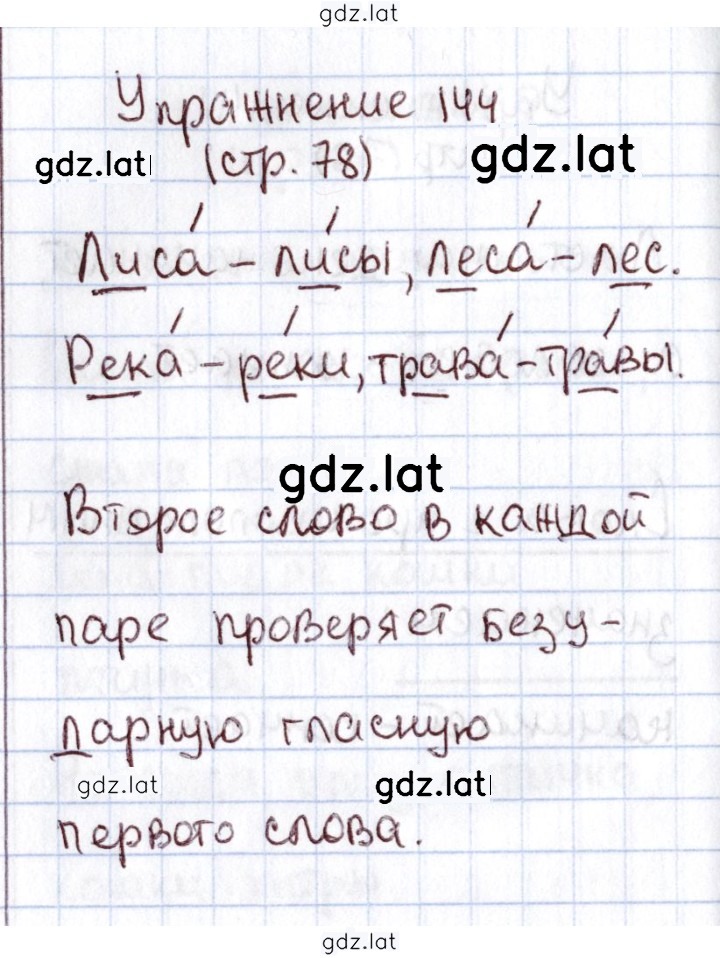 gdz.lat
Упражнение 144
gdz.lat (стр. 78) gdz.lat
Лиса́ - ли́сы, леса́ - лес.
Река́ - ре́ки, трава́ - тра́вы.
gdz.lat
Второе слово в каждой
паре проверяет безу-
дарную гласную
gdz.lat gdz.lat
первого слова.
gdz.lat